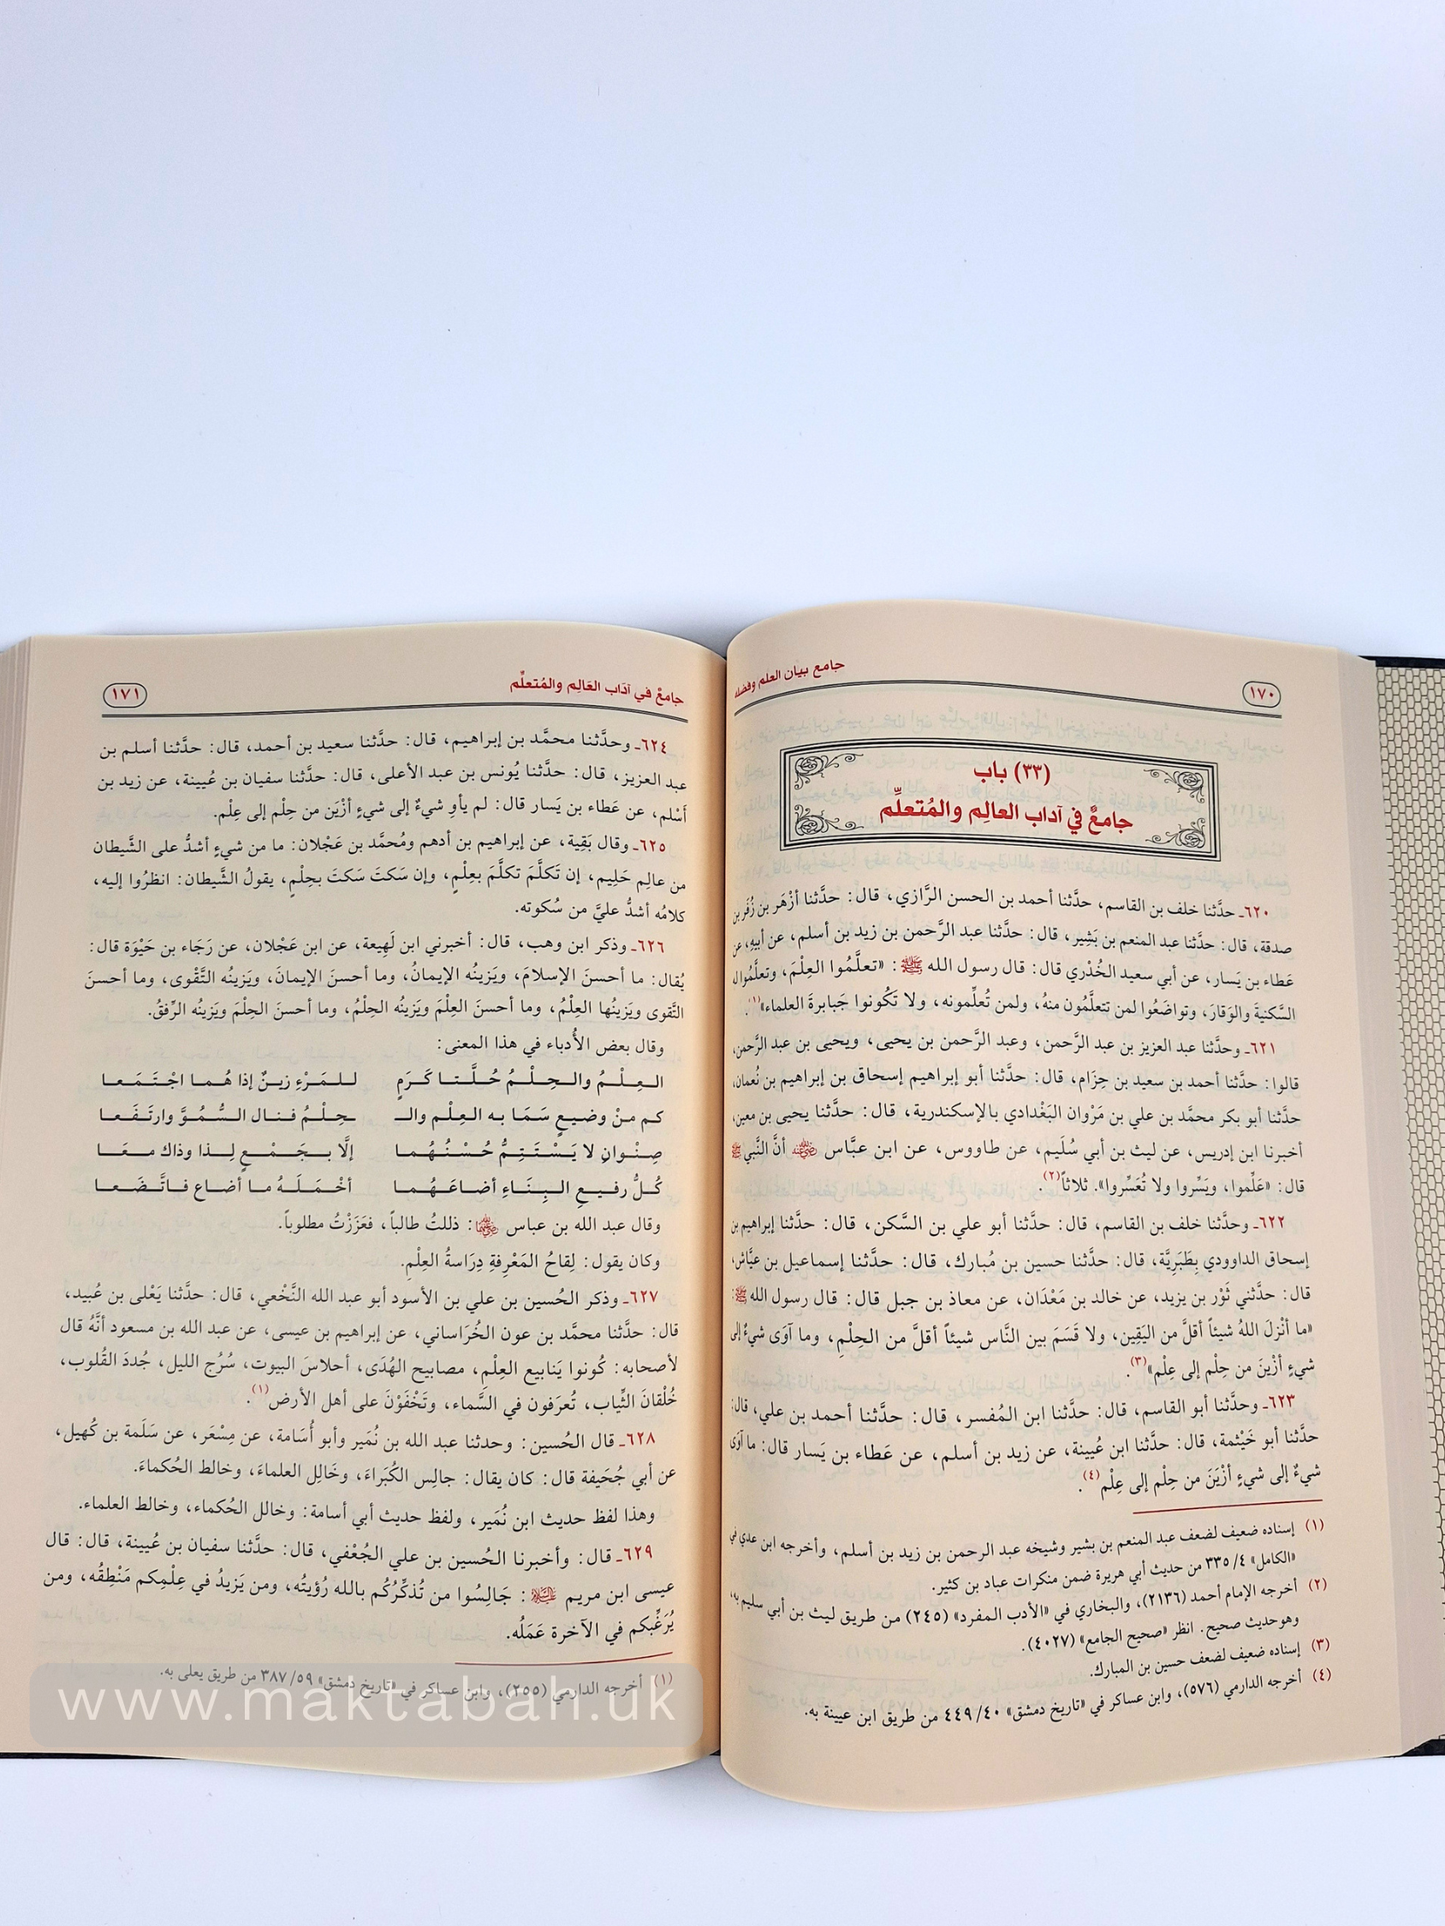 ١٧٠
جامع بيان العلم وفضله
(٣٣) باب
جامعٌ في آداب العالِم والمُتعلِّم
٦٢٠ـ حدَّثنا خلف بن القاسم، حدَّثنا أحمد بن الحسن الرَّازي، قال: حدَّثنا أزْهَر بن زُفَر بن
صدقة، قال: حدَّثنا عبد المنعم بن بَشِير، قال: حدَّثنا عبد الرَّحمن بن زيد بن أسلم، عن أبيهِ، عن
عَطاء بن يَسار، عن أبي سعيد الخُدْري قال: قال رسول الله ﷺ: «تعلَّمُوا العِلْمَ، وتعلَّمُوا ل
السَّكنيةَ والوَقارَ، وتواضَعُوا لمن تتعلَّمُون منهُ، ولمن تُعلِّمونه، ولا تَكُونوا جَبابرةَ العلماء»(١).
٦٢١ـ وحدَّثنا عبد العزيز بن عبد الرَّحمن، وعبد الرَّحمن بن يحيى، ويحيى بن عبد الرَّحمن،
قالوا: حدَّثنا أحمد بن سعيد بن حِزَام، قال: حدَّثنا أبو إبراهيم إسحاق بن إبراهيم بن نُعمان،
حدَّثنا أبو بكر محمَّد بن علي بن مَرْوان البَغْدادي بالإسكندرية، قال: حدَّثنا يحيى بن معين،
أخبرنا ابن إدريس، عن ليث بن أبي سُلَيم، عن طاووس، عن ابن عبَّاس ﵄ أنَّ النَّبي ﷺ
قال: «عَلِّموا، ويَسِّروا ولا تُعَسِّروا». ثلاثاً(٢).
٦٢٢ـ وحدَّثنا خلف بن القاسم، قال: حدَّثنا أبو علي بن السَّكن، قال: حدَّثنا إبراهيم بن
إسحاق الداوودي بِطَبَرِيَّة، قال: حدَّثنا حسين بن مُبارك، قال: حدَّثنا إسماعيل بن عيَّاش،
قال: حدَّثني ثَوْر بن يزيد، عن خالد بن مَعْدَان، عن معاذ بن جبل قال: قال رسول الله ﷺ:
«ما أنْزلَ اللهُ شيئاً أقلَّ من اليَقِين، ولا قَسَمَ بين النَّاس شيئاً أقلَّ من الحِلْمِ، وما آوَى شيءٌ إلى
شيءٍ أزْينَ من حِلْم إلى عِلْم»(٣).
٦٢٣ـ وحدَّثنا أبو القاسم، قال: حدَّثنا ابن المُفسر، قال: حدَّثنا أحمد بن علي، قال:
حدَّثنا أبو خَيْثمة، قال: حدَّثنا ابن عُيينة، عن زيد بن أسلم، عن عَطاء بن يَسار قال: ما آوَى
شيءٌ إلى شيءٍ أزْيَنَ من حِلْم إلى عِلْم(٤).
(١) إسناده ضعيف لضعف عبد المنعم بن بشير وشيخه عبد الرحمن بن زيد بن أسلم، وأخرجه ابن عدي في
«الكامل» ٤/ ٣٣٥ من حديث أبي هريرة ضمن منكرات عباد بن كثير.
(٢) أخرجه الإمام أحمد (٢١٣٦)، والبخاري في «الأدب المفرد» (٢٤٥) من طريق ليث بن أبي سليم به،
وهوحديث صحيح. انظر «صحيح الجامع» (٤٠٢٧).
(٣) إسناده ضعيف لضعف حسين بن المبارك.
(٤) أخرجه الدارمي (٥٧٦)، وابن عساكر في «تاريخ دمشق» ٤٠/ ٤٤٩ من طريق ابن عيينة به.
جامعٌ في آداب العَالِم والمُتعلِّم
١٧١
٦٢٤ـ وحدَّثنا محمَّد بن إبراهيم، قال: حدَّثنا سعيد بن أحمد، قال: حدَّثنا أسلم بن
عبد العزيز، قال: حدَّثنا يُونس بن عبد الأعلى، قال: حدَّثنا سفيان بن عُيينة، عن زيد بن
أسْلم، عن عَطاء بن يَسار قال: لم يأوِ شيءٌ إلى شيءٍ أزْيَن من حِلْم إلى عِلْم.
٦٢٥ـ وقال بَقِية، عن إبراهيم بن أدهم ومُحمَّد بن عَجْلان: ما من شيءٍ أشدُّ على الشَّيطان
من عالِم حَلِيم، إن تَكلَّمَ تكلَّمَ بعِلْمٍ، وإن سَكتَ سَكتَ بحِلْمٍ، يقولُ الشَّيطان: انظرُوا إليه،
كلامُه أشدُّ عليَّ من سُكوته.
٦٢٦ـ وذكر ابن وهب، قال: أخبرني ابن لَهِيعة، عن ابن عَجْلان، عن رَجَاء بن حَيْوَة قال:
يُقال: ما أحسنَ الإسلامَ، ويَزينُه الإيمانُ، وما أحسنَ الإيمانَ، ويَزينُه التَّقْوى، وما أحسنَ
التَّقوى ويَزينُها العِلْمُ، وما أحسنَ العِلْمَ ويَزينُه الحِلْمُ، وما أحسنَ الحِلْمَ ويَزينُه الرِّفقُ.
وقال بعض الأُدباء في هذا المعنى:
العِلْمُ والحِلْمُ حُلَّتا كَرَمٍ للمَرْءِ زينٌ إذا هُما اجْتَمَعا
كم منْ وضيعٍ سَمَا به العِلْم والـ ـحِلْمُ فنال السُّمُوَّ وارتَفَعا
صِنْوانِ لا يَسْتَتِمُّ حُسْنُهُما إلَّا بجَمْعٍ لِذا وذاك معَا
كُلُّ رفيعِ البِنَاءِ أضاعَهُما أخْمَلَهُ ما أضاع فاتَّضَعا
وقال عبد الله بن عباس ﵄: ذللتُ طالباً، فعَزَزْتُ مطلوباً.
وكان يقول: لِقاحُ المَعْرِفةِ دِرَاسةُ العِلْمِ.
٦٢٧ـ وذكر الحُسين بن علي بن الأسود أبو عبد الله النَّخْعي، قال: حدَّثنا يَعْلى بن عُبيد،
قال: حدَّثنا محمَّد بن عون الخُرَاساني، عن إبراهيم بن عيسى، عن عبد الله بن مسعود أنَّهُ قال
لأصحابه: كُونوا يَنابيع العِلْم، مصابيح الهُدَى، أحلاسَ البيوت، سُرُج الليل، جُددَ القُلوب،
خُلْقانَ الثِّياب، تُعرَفون في السَّماء، وتَخْفَوْنَ على أهل الأرض(١).
٦٢٨ـ قال الحُسين: وحدثنا عبد الله بن نُمَير وأبو أُسَامة، عن مِسْعَر، عن سَلَمة بن كُهيل،
عن أبي جُحَيفة قال: كان يقال: جالِس الكُبَراءَ، وخَالِل العلماءَ، وخالط الحُكماءَ.
وهذا لفظ حديث ابن نُمَير، ولفظ حديث أبي أسامة: وخالل الحُكماء، وخالط العلماء.
٦٢٩ـ قال: وأخبرنا الحُسين بن علي الجُعْفي، قال: حدَّثنا سفيان بن عُيينة، قال: قال
عيسى ابن مريم ﵇: جَالِسُوا من تُذَكِّرُكُم بالله رُؤيتُه، ومن يَزيدُ في عِلْمِكم مَنْطِقُه، ومن
يُرَغِّبكم في الآخرة عَمَلُه.
(١) أخرجه الدارمي (٢٥٥)، وابن عساكر في «تاريخ دمشق» ٥٩/ ٣٨٧ من طريق يعلى به.
www.maktabah.uk